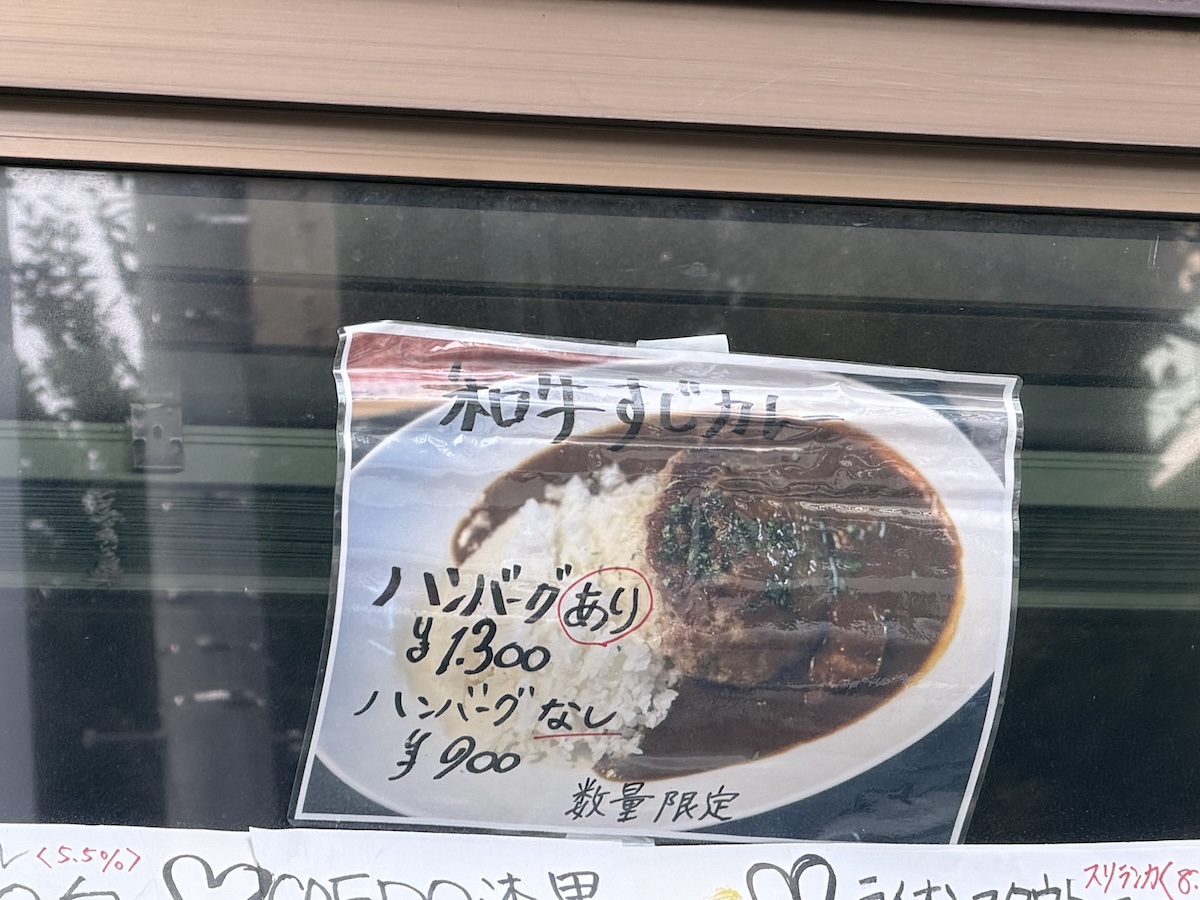 和牛すじカレー
ハンバーグあり
¥1.300
ハンバーグなし
¥900
数量限定
<5.5%>
COEDO漆黒
ライオンスタウト
スリランカ<8.